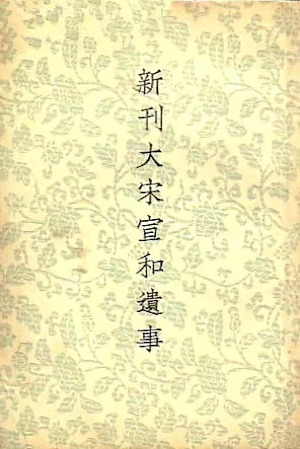 新刊大宋宣和遺事